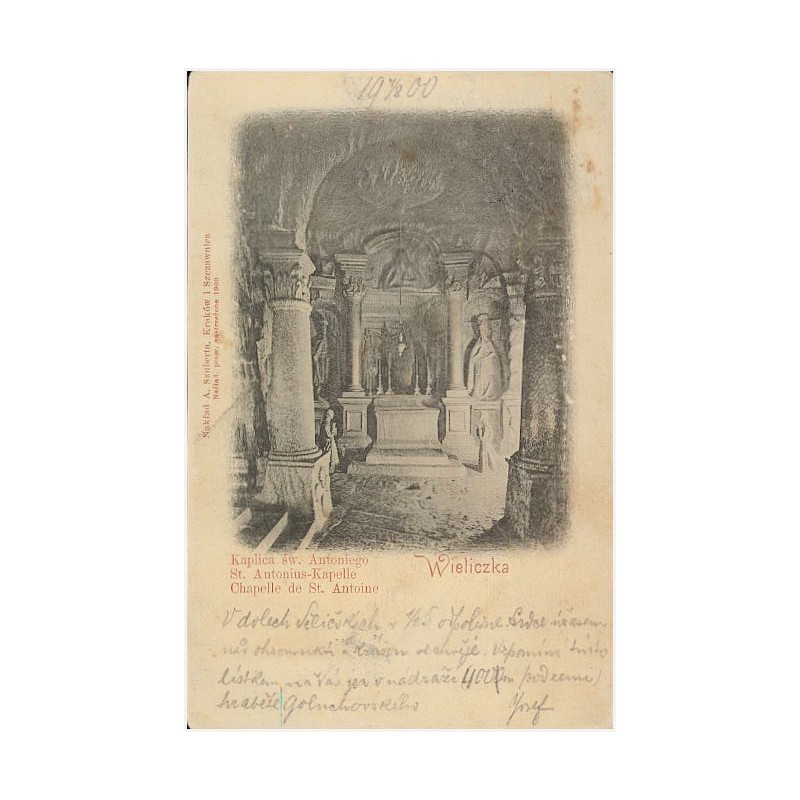 19 7/8 00
Nakład A. Szuberta, Kraków i Szczawnica
Nakład. prawn. zastrzeżone 1900
Kaplica św. Antoniego
St. Antonius-Kapelle
Chapelle de St. Antoine
Wieliczka
V dolech
nad ohromností. Vzpomíná tímto
lístkem na Vás jsa v nádraží 400 m pod zemí
hraběte Goluchovského Josef